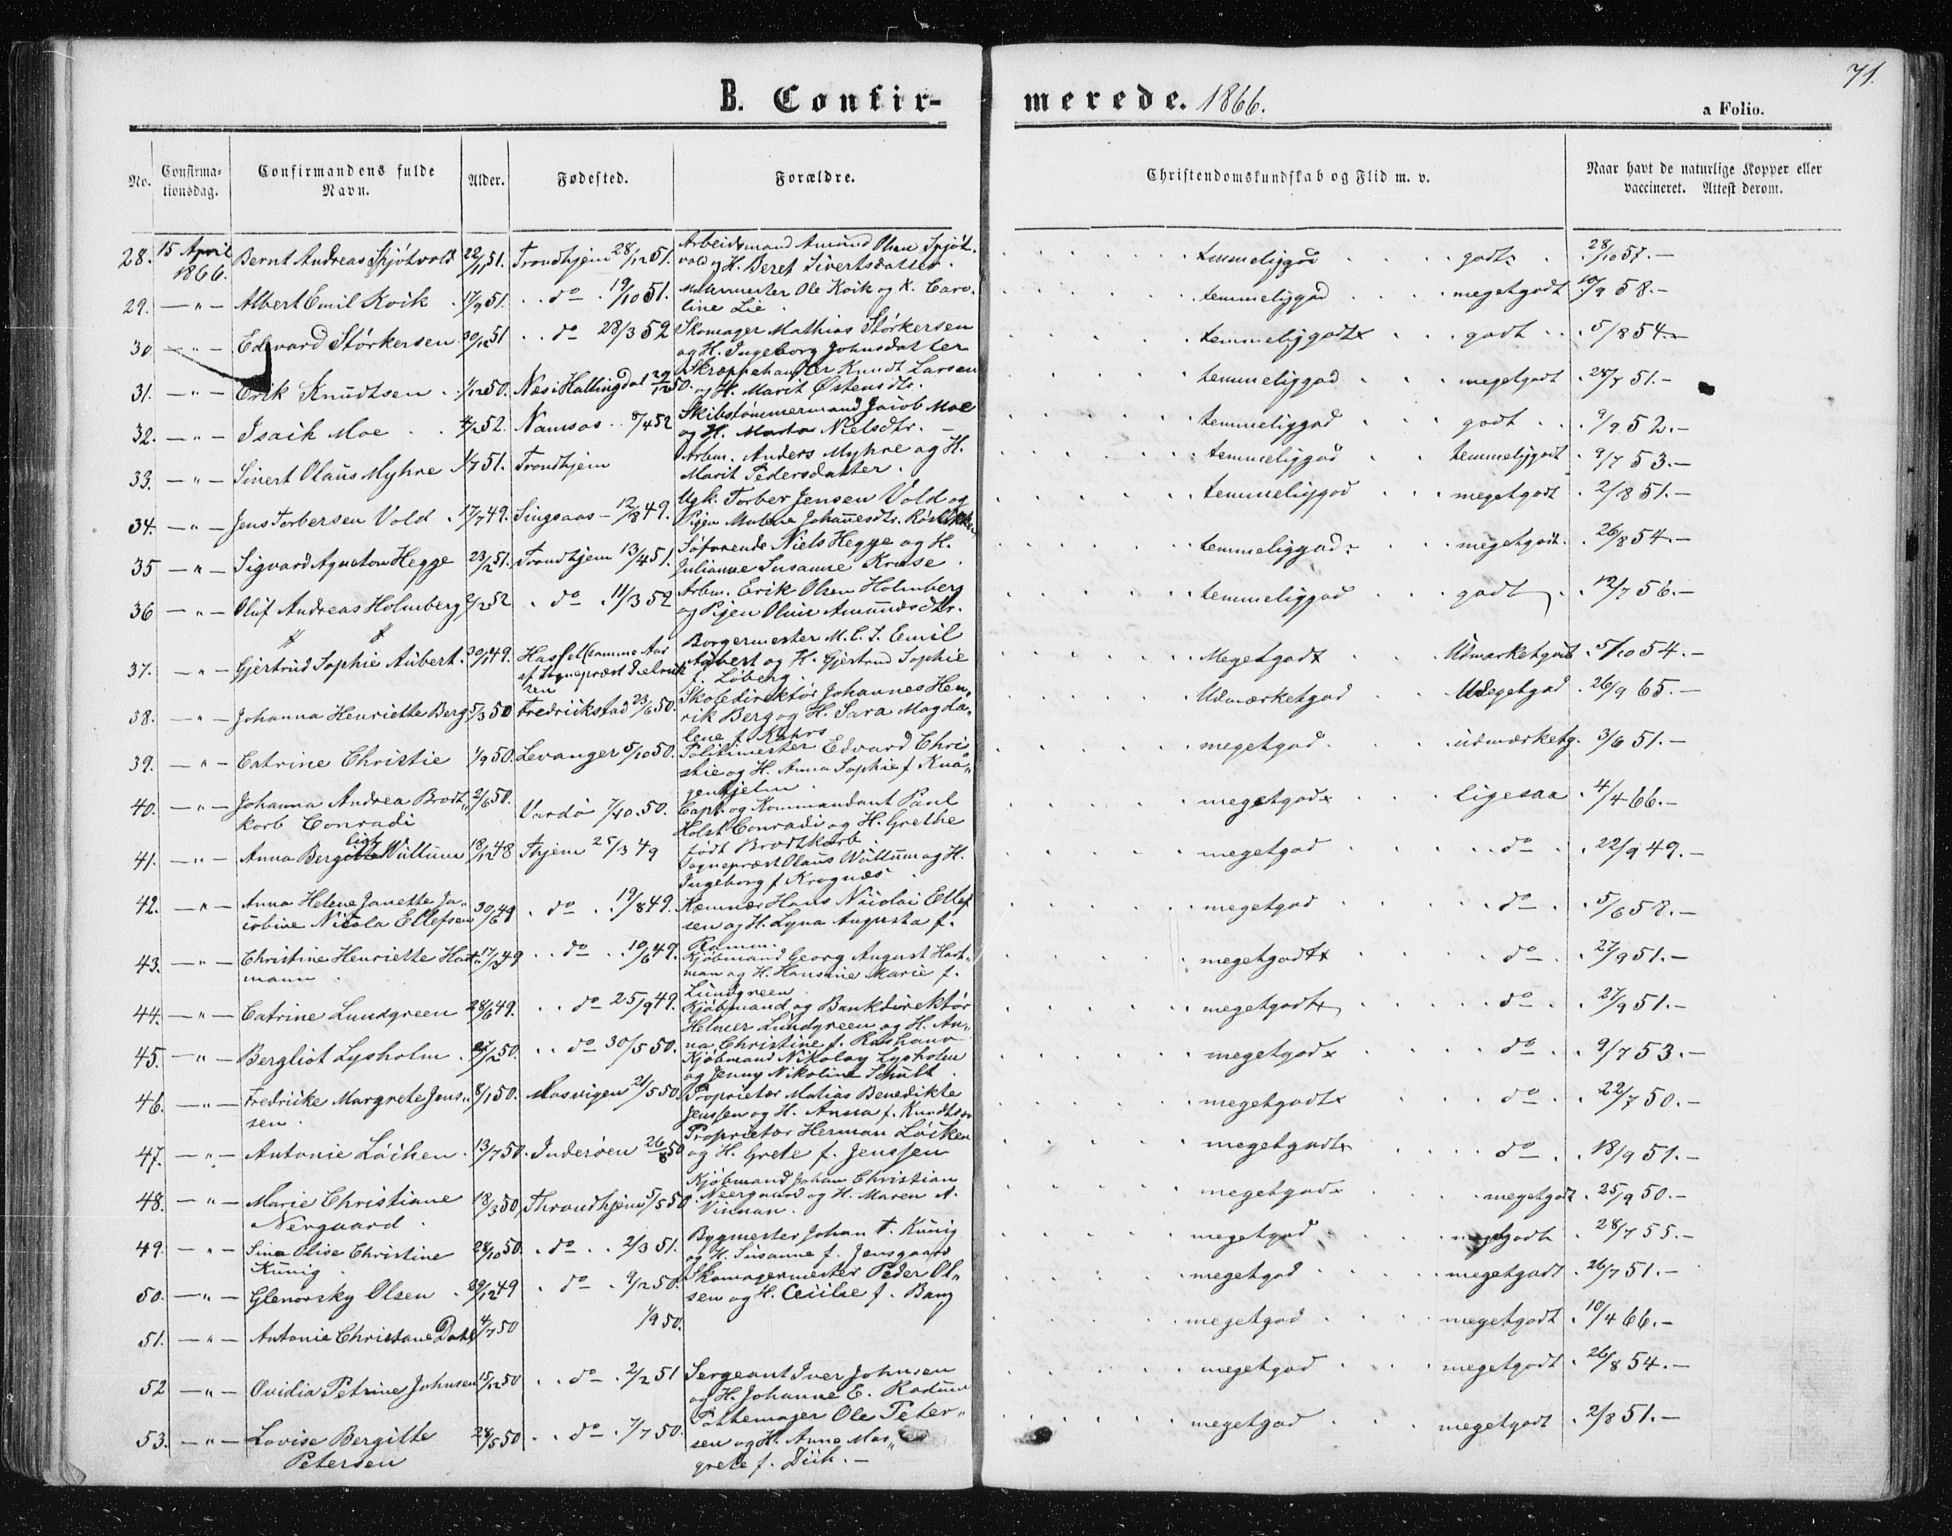 71.
B. Confir-
merede. 1866.
a Folio.
No.
Confirma-
tionsdag.
Confirmandens fulde
Navn.
Alder.
Fødested.
Forældre.
Christendomskundskab og Flid m. v.
Naar havt de naturlige Kopper eller
vaccineret. Attest derom.
28. 15 April 1866. Bernt Andreas Skjötvold 22/11 51. Trondhjem 28/12 51. Arbeidsmand Amund Olsen Skjöt-
vold og H. Beret Sivertsdatter. temmeliggod godt 28/10 57.-
29. -"- Albert Emil Kvik 17/9 51. do 19/10 51. Malermester Ole Kvik og K. Caro-
line Lie temmeliggod megetgodt 10/9 58.-
30. -"- Edvard Störkersen 30/12 51 do 28/3 52 Skomager Mathias Störkersen
og H. Ingeborg Johnsdatter temmeliggodt godt 5/8 54.-
31. -"- Erik Knudtsen 1/12 50. Nes i Hallingdal 29/12 50. Skræppehandler Knudt Larsen
og H. Marit Østensdtr. temmeliggod megetgodt 28/8 51.-
32. -"- Isaik Moe 4/2 52. Namsos 8/4 52 Skibstömmermand Jacob Moe
og H. Marta Nielsdtr. - temmeliggod godt 9/9 52.-
33. -"- Sivert Olaus Myhre 1/7 51. Trondhjem Arbm. Anders Myhre og H.
Marit Pedersdatter. temmeliggod temmeliggodt 9/7 53.-
34. -"- Jens Torbersen Vold 17/7 49. Singsaas - 12/8 49. Ugk. Torber Jensen Vold og
Pigen Malene Johannesdtr. temmeliggod megetgodt 2/8 51.-
35 -"- Sigvard Agneton Hegge 23/2 51. Trondhjem 13/4 51. Söfarende Niels Hegge og H.
Julianne Susanne Kruse. temmeliggod megetgodt. 26/8 54.-
36 -"- Oluf Andreas Holmberg 2/2 52 do 11/3 52 Arbm. Erik Olsen Holmberg
og Pigen Oline Amundsdtr. temmeliggod godt 12/7 56.-
37. -"- Gjertrud Sophie Aubert. 30/1 49. Hassel (samme Aar
af Sognepræst Dietrich
sen Borgermester M. C. S. Emil
Aubert og H. Gjertrud Sophie
f. Löberg. Megetgodt Udmærketgodt 5/10 54.-
38. -"- Johanna Henriette Berg 5/3 50 Fredrikstad 23/6 50. Skoledirektör Johannes Hen-
rik Berg og H. Sara Magda-
lene f. Kahrs Udmærketgod Megetgod 26/9 65.-
39. -"- Catrine Christie 1/9 50. Levanger 5/10 50. Politimester Edvard Chri
stie og H. Anna Sophie f. Kna-
genhjelm. megetgod udmærketg. 3/6 51.-
40. -"- Johanna Andrea Brodt-
korb Conradi 2/6 50. Vardö 7/10. 50. Capt. og Kommandant Paul
Holst Conradi og H. Grethe
födt Brodtkorb megetgod Ligesaa 4/4 66.-
41. -"- Anna Bergitte Wullum 18/12 48 Thjem 25/3 49 Sognepræst Olaus Wullum og H.
Ingeborg f. Krognæs megetgod do 22/9 49.-
42. -"- Anna Helene Janette Ja-
cobine Nicola Ellefsen 30/6 49 do 19/8 49. Kæmner Hans Nicolai Ellef
sen og H. Lyna Augusta f.
Ramm. megetgod do 5/6 58.-
43. -"- Christine Henriette Hart-
mann. 17/3 49 do 10/6 49. Kjöbmand Georg August Hart-
man og H. Hansine Marie f.
Lundgreen megetgodt do 27/9 51.-
44. -"- Catrine Lundgreen 28/6 49. do 25/9 49. Kjöbmand og Bankdirektör
Helmer Lundgreen og H. An-
na Christine f. megetgodt do 27/9 51.-
45. -"- Bergliot Lysholm. 27/2 50. do 30/5 50. Kjöbmand Nikolay Lysholm
og Jenny Nikoline Schult. megetgod do 9/7 53.-
46. -"- Fredrikke Margrete Jens-
sen. 8/1 50. Mosvigen 21/5 50 Proprietær Matias Benedikte
Jenssen og H. Anna f. Knudtson megetgodt do 22/7 50.-
47. -"- Antonie Löchen. 13/7 50. Inderöen 26/8 50 Proprietær Herman Löchen
og H. Grete f. Jenssen megetgodt do 18/9 51.-
48. -"- Marie Christiane
Nergaard. 18/3 50, Throndhjem 5/5 50 Kjöbmand Johan Christian
Neergaard og H. Maren A.
Vinnan. megetgod megetgodt 25/9 50.-
49. -"- Sina Elise Christine
Künig. 28/10 50. do 2/3 51. Bygmester Johan F. Künig
og H. Susanne f. Jensgaard megetgod megetgodt 28/7 55.-
50. -"- Glenorsky Olsen. 29/12 49 do 9/2 50. Skomagermester Peder Ol-
sen og H. Cecilie f. Bang megetgod megetgodt 26/7 51.-
51. -"- Antonie Christiane Dahl 4/7 50 1/9 50. megetgod megetgodt 10/4 66.-
52 -"- Ovidia Petrine Johnsen 15/12 50 do 2/2 51 Sergeant Iver Johnsen
og H. Johanne E. megetgod megetgodt 26/8 54.-
53. -"- Lovise Bergitte
Petersen 28/5 50 do 7/7 50. Pottemager Ole Peter-
sen og H. Anne Mar-
grete f. Diih.- megetgod megetgodt 2/8 51.-